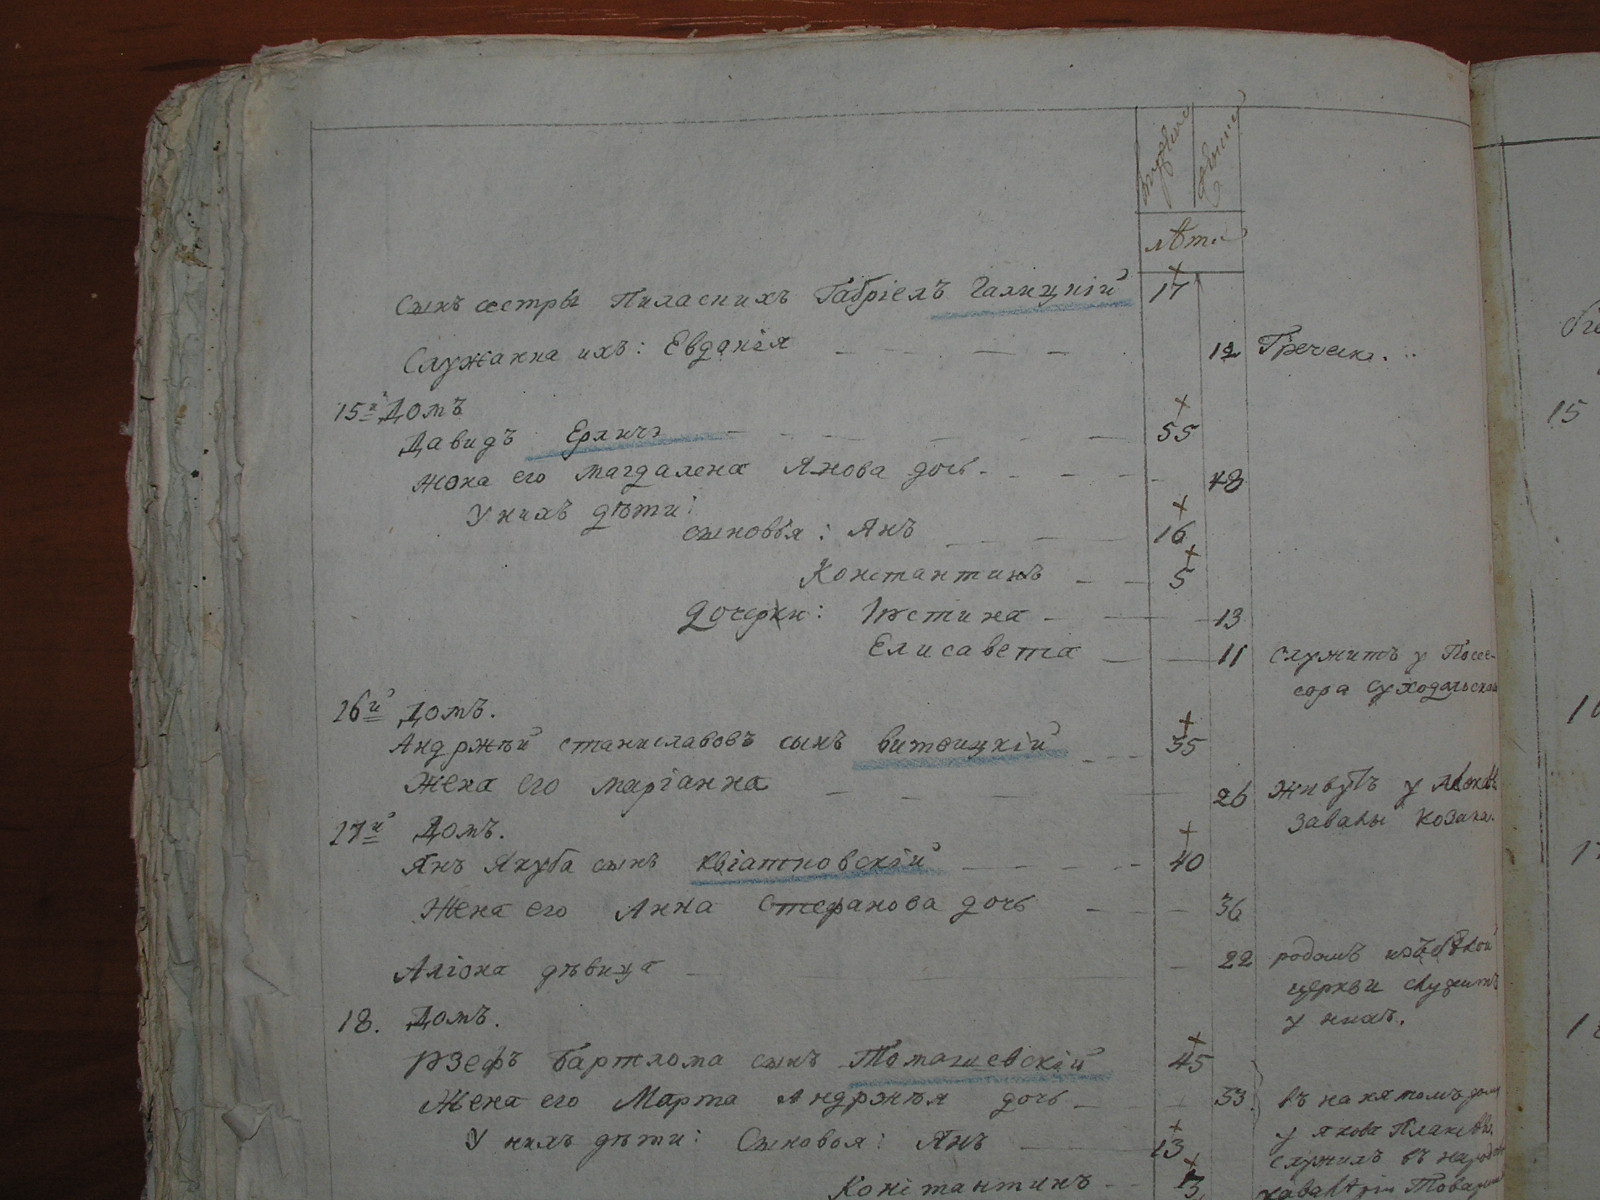 лѣта
Сынъ сестры Пиласкихъ Габріель Галицкій 17
Служанка ихъ: Евдакія 12 Греческ.
15й Домъ
Давидъ Ерличъ 55
Жона его Магдалена Янова дочь 48
У нихъ дѣти:
сыновья: Янъ 16
Константинъ 5
Дочерки: Юстина 13
Елисавета 11 служитъ у Поссе-
сора Суходольскаго
16й Домъ.
Андржѣй Станиславовъ сынъ Витвицкій 35
Жена его Маріанна 26 живутъ у
Завалы Козака
17й Домъ.
Янъ Якуба сынъ Квіатковскій 40
Жена его Анна Стефанова дочь 36
Аліона дѣвица 22 родомъ изъ
церкви служитъ
у нихъ.
18. Домъ.
Юзефъ Бартлома сынъ Томашевскій 45
Жена его Марта Андржѣя дочь 33 въ нанятомъ домѣ
У нихъ дѣти: Сыновья: Янъ 13 у Якова
служилъ въ
Константинъ 3
15